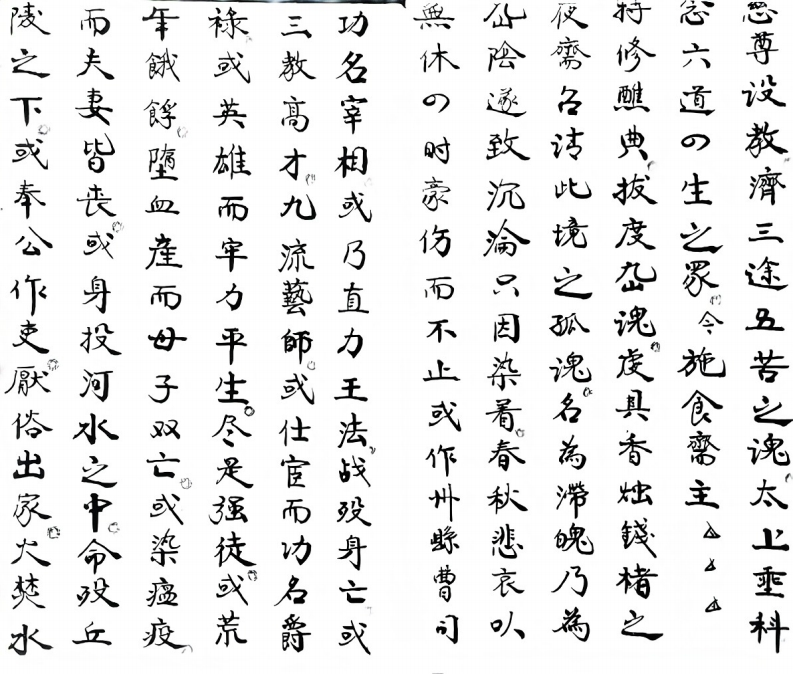 慈尊设教濟三途五苦之魂太上垂科
念六道の生之眾今施食齋主厶厶厶
特修醮典拔度孤魂虔具香烛錢楮之
夜齋召请此境之孤魂名為滯魄乃為
陰遂致沉淪只因染着春秋悲哀叺
無休の时豪伤而不止或作州縣曹司
功名宰相或乃直力王法战殁身亡或
三教高才九流藝師或仕宦而功名爵
祿或英雄而牢力平生尽是强徒或荒
年餓殍墮血産而母子双亡或染瘟疫
而夫妻皆丧或身投河水之中命殁丘
陵之下或奉公作吏厭俗出家火焚水